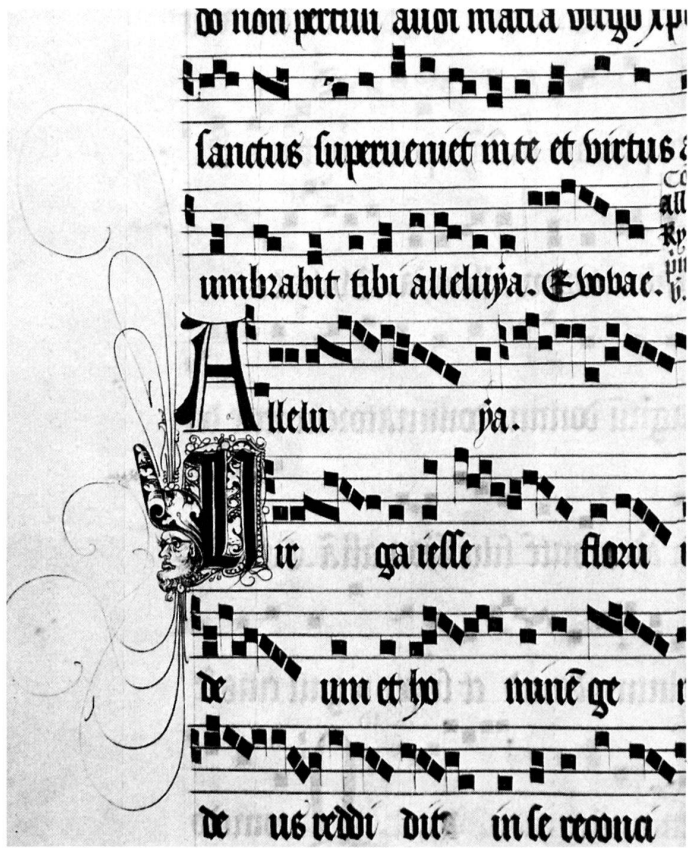 do non pertuli audi maria virgo xpi
sanctus superueniet in te et virtus a
umbrabit tibi alleluÿa. Ewovae.
all
Ky
v.
Allelu ÿa.
Vir ga iesse floru
de um et ho minē ge
de us reddi dit in se reconci